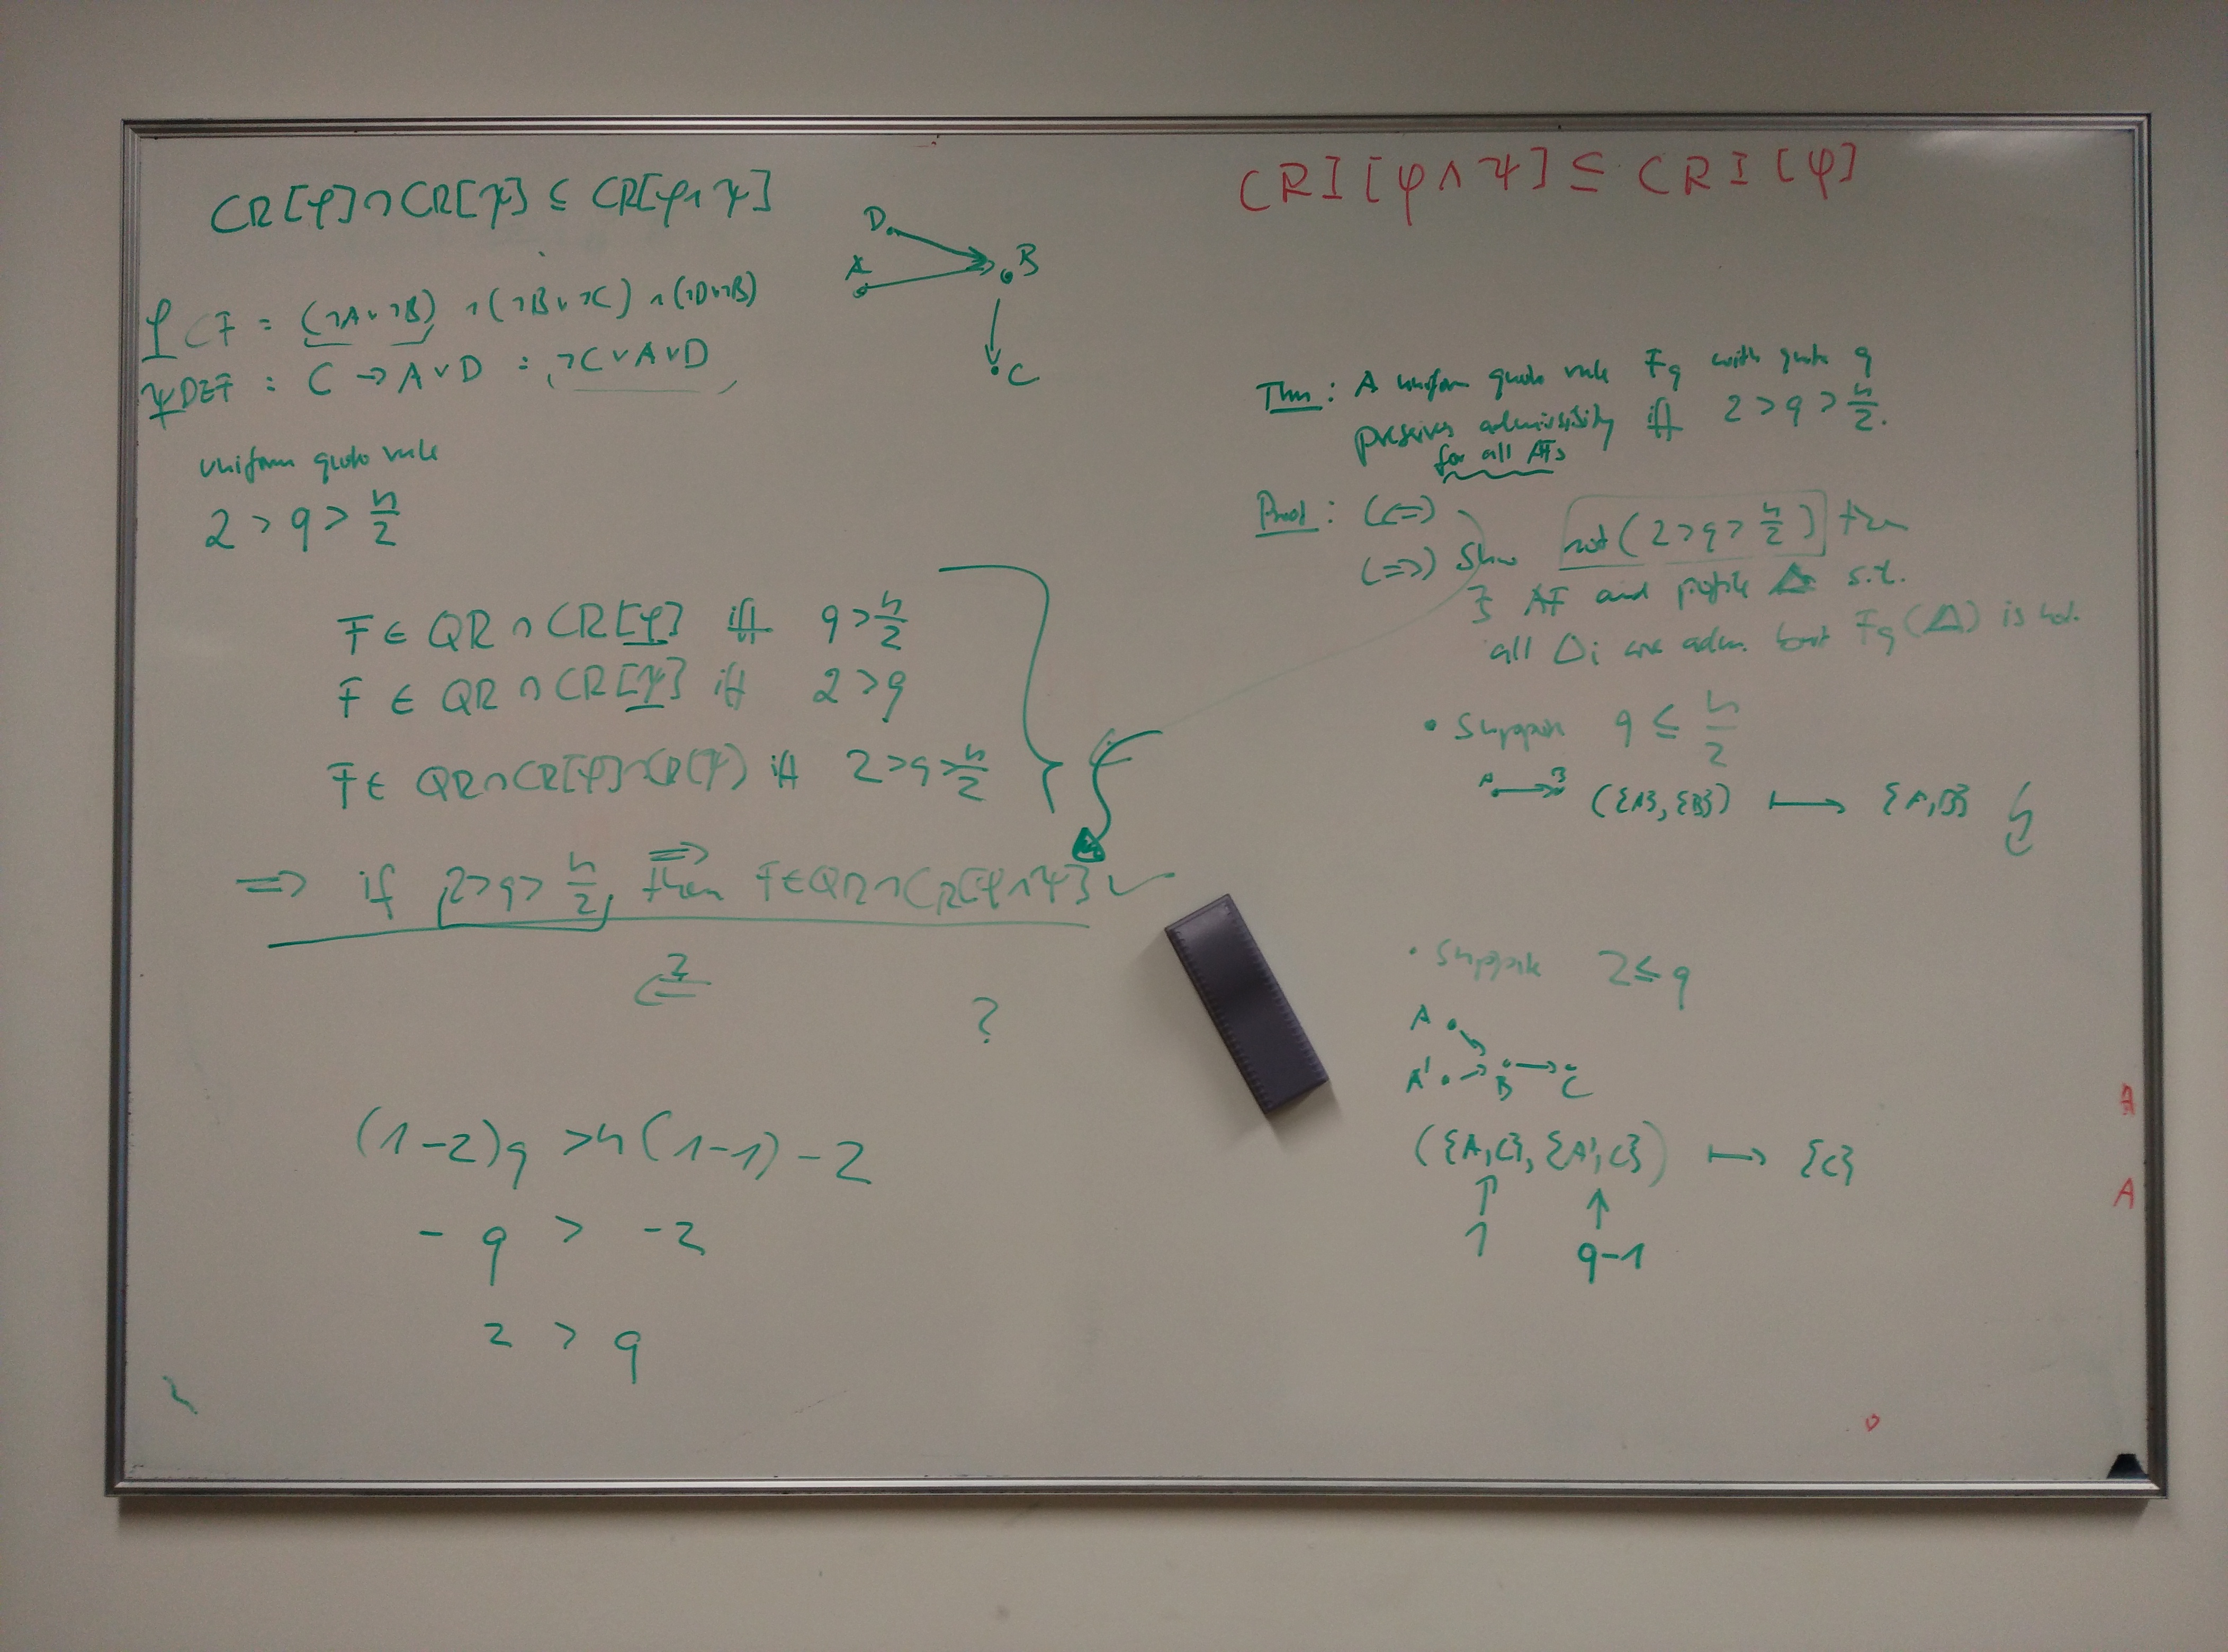 CR[φ]∩CR[ψ] ⊆ CR[φ∧ψ]
D
A
B
C
φ CF = (¬A∨¬B) ∧ (¬B∨¬C) ∧ (¬D∨¬B)
ψ DEF = C → A∨D = ¬C∨A∨D
uniform quota rule
2 > q > n/2
F ∈ QR ∩ CR[φ] iff q > n/2
F ∈ QR ∩ CR[ψ] iff 2 > q
F ∈ QR∩CR[φ]∩CR(ψ) iff 2 > q > n/2
⇒
⇒ if 2>q>n/2, then F∈QR∩CR[φ∧ψ] ✓
?
⇐
?
(1-2)q > n(1-1) - 2
- q > - 2
2 > q
CRI[φ∧ψ] ⊆ CRI[φ]
Thm: A uniform quota rule Fq with quota q
preserves admissibility iff 2 > q > n/2.
for all AFs
Proof: (⇐)
(⇒) Show not(2>q>n/2) then
∃ AF and profile Δ s.t.
all Δi are adm. but Fq(Δ) is not.
• Suppose q ≤ n/2
A → B ({A}, {B}) ↦ {A,B} ↯
• Suppose 2 ≤ q
A
A' → B → C
({A,C}, {A',C}) ↦ {C}
↑ ↑
1 q-1
A